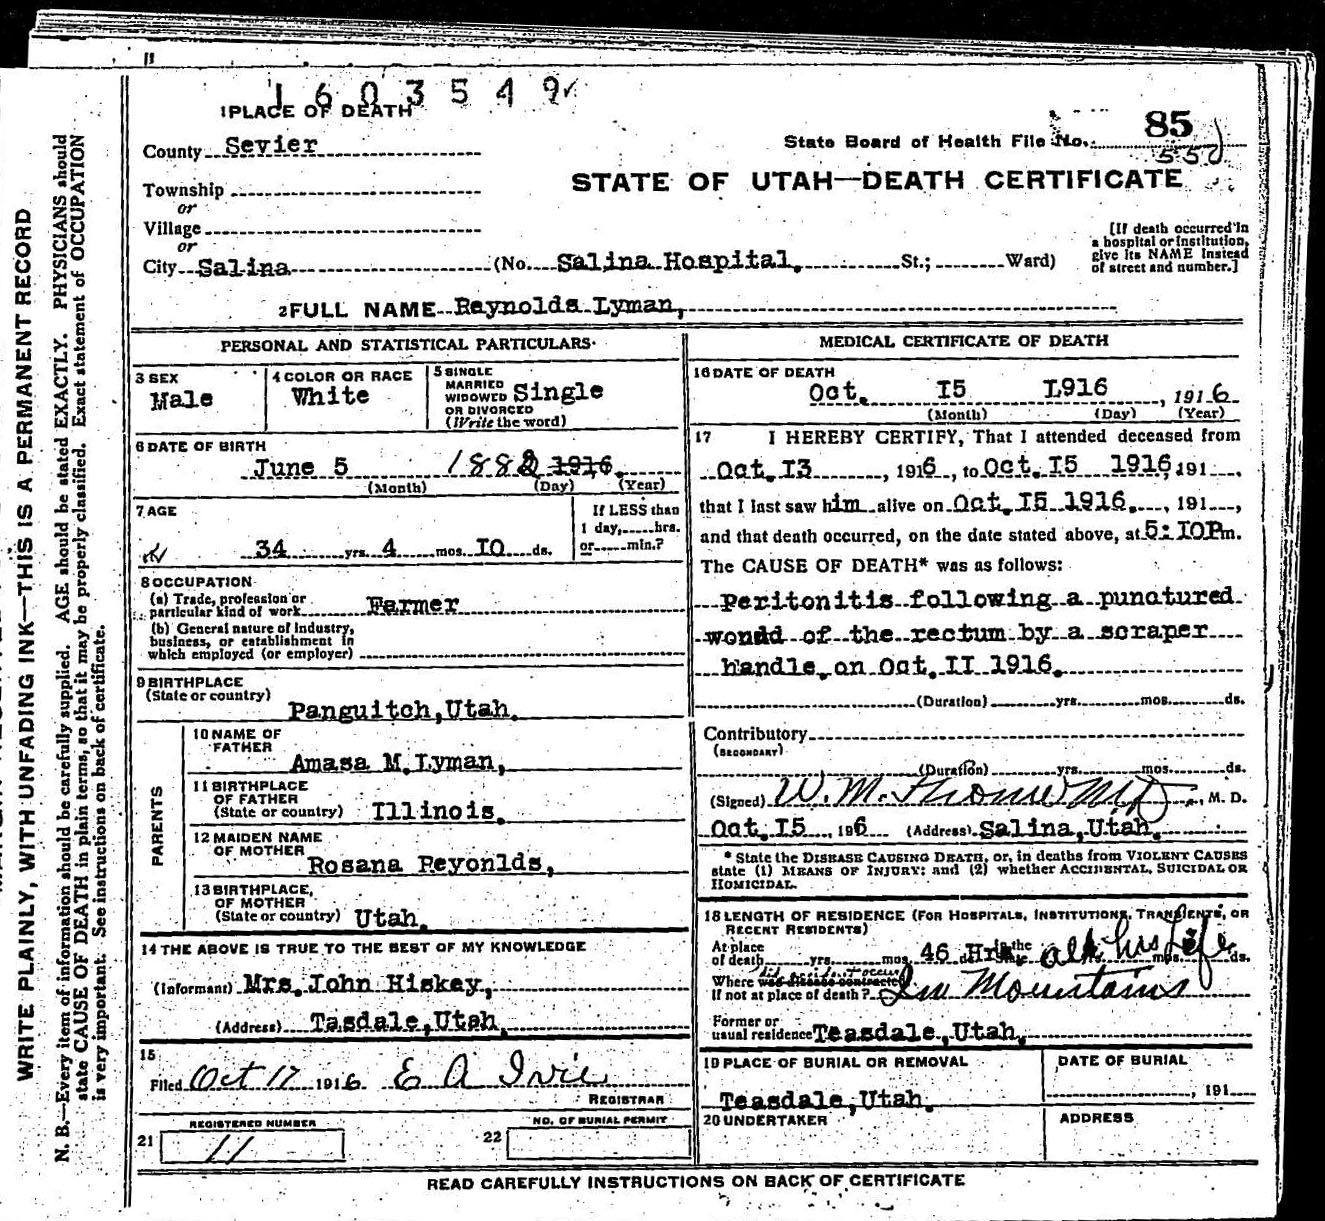 1603549
1 PLACE OF DEATH
County Sevier
State Board of Health File No. 85
550
Township
or
Village
or
City Salina (No. Salina Hospital, St.; Ward)
STATE OF UTAH—DEATH CERTIFICATE
[If death occurred in
a hospital or institution,
give its NAME instead
of street and number.]
2 FULL NAME Reynolds Lyman,
PERSONAL AND STATISTICAL PARTICULARS
3 SEX
Male
4 COLOR OR RACE
White
5 SINGLE
MARRIED
WIDOWED
OR DIVORCED
(Write the word)
Single
6 DATE OF BIRTH
June 5 1882 1916.
(Month) (Day) (Year)
7 AGE
34 yrs. 4 mos. I0 ds.
If LESS than
1 day, hrs.
or min.?
8 OCCUPATION
(a) Trade, profession or
particular kind of work Farmer
(b) General nature of industry,
business, or establishment in
which employed (or employer)
9 BIRTHPLACE
(State or country)
Panguitch, Utah.
PARENTS
10 NAME OF
FATHER
Amasa M. Lyman,
11 BIRTHPLACE
OF FATHER
(State or country) Illinois.
12 MAIDEN NAME
OF MOTHER
Rosana Peyonlds,
13 BIRTHPLACE,
OF MOTHER
(State or country) Utah.
14 THE ABOVE IS TRUE TO THE BEST OF MY KNOWLEDGE
(Informant) Mrs. John Hiskey,
(Address) Tasdale, Utah.
15
Filed Oct 17 1916 E A Ivie
REGISTRAR
REGISTERED NUMBER
21 11
NO. OF BURIAL PERMIT
22
MEDICAL CERTIFICATE OF DEATH
16 DATE OF DEATH
Oct. I5 L916, 1916
(Month) (Day) (Year)
17 I HEREBY CERTIFY, That I attended deceased from
Oct. I3, 1916, to Oct. I5 1916, 191
that I last saw him alive on Oct. I5 1916., 191,
and that death occurred, on the date stated above, at 5:I0Pm.
The CAUSE OF DEATH* was as follows:
Peritonitis following a punctured
wondd of the rectum by a scraper
handle, on Oct. II 1916.
(Duration) yrs. mos. ds.
Contributory
(SECONDARY)
(Duration) yrs. mos. ds.
(Signed) W. M. MD, M. D.
Oct. I5, 196 (Address) Salina, Utah.
* State the DISEASE CAUSING DEATH, or, in deaths from VIOLENT CAUSES
state (1) MEANS OF INJURY; and (2) whether ACCIDENTAL, SUICIDAL OR
HOMICIDAL.
18 LENGTH OF RESIDENCE (FOR HOSPITALS, INSTITUTIONS, TRANSIENTS, OR
RECENT RESIDENTS)
At place
of death yrs. mos. 46 Hrs. In the all his Life mos. ds.
Where was disease contracted
If not at place of death? In Mountains
Former or
usual residence Teasdale, Utah,
19 PLACE OF BURIAL OR REMOVAL
Teasdale, Utah.
DATE OF BURIAL
, 191
20 UNDERTAKER
ADDRESS
READ CAREFULLY INSTRUCTIONS ON BACK OF CERTIFICATE
WRITE PLAINLY, WITH UNFADING INK—THIS IS A PERMANENT RECORD
N. B.—Every item of information should be carefully supplied. AGE should be stated EXACTLY. PHYSICIANS should
state CAUSE OF DEATH in plain terms, so that it may be properly classified. Exact statement of OCCUPATION
is very important. See instructions on back of certificate.